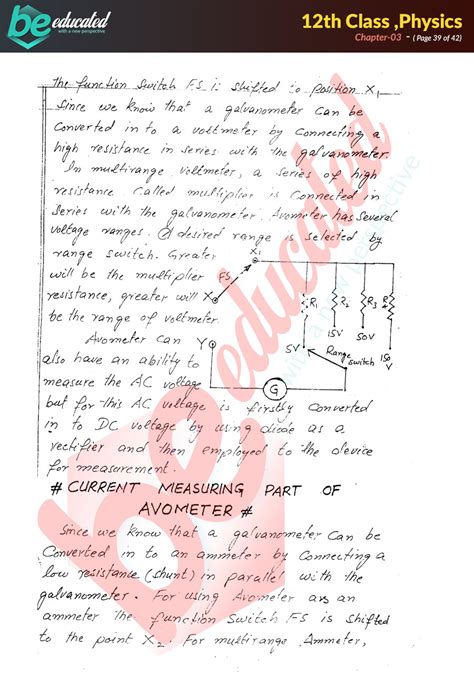 be educated
with a new perspective
12th Class ,Physics
Chapter-03 - ( Page 39 of 42)
The function Switch FS is shifted to position X1
Since we know that a galvanometer Can be
Converted in to a voltmeter by Connecting a
high resistance in series with the galvanometer.
In multirange voltmeter, a series of high
resistance Called multiplier is Connected in
Series with the galvanometer. Avometer has Several
voltage ranges. A desired range is selected by
range switch. Greater
will be the multiplier
resistance, greater will
be the range of voltmeter.
X1
FS
X
R1
R2
R3
R4
15V
50V
5V
Range
switch
150
V
Y
G
Avometer Can
also have an ability to
measure the AC voltage
but for this AC voltage is firstly Converted
in to DC voltage by using diode as a
rectifier and then employed to the device
for measurement.
# CURRENT MEASURING PART OF
AVOMETER #
Since we know that a galvanometer Can be
Converted in to an ammeter by Connecting a
low resistance (shunt) in parallel with the
galvanometer. For using Avometer as an
ammeter The function Switch FS is shifted
to the point X2. For multirange Ammeter,
be educated
with a new perspective